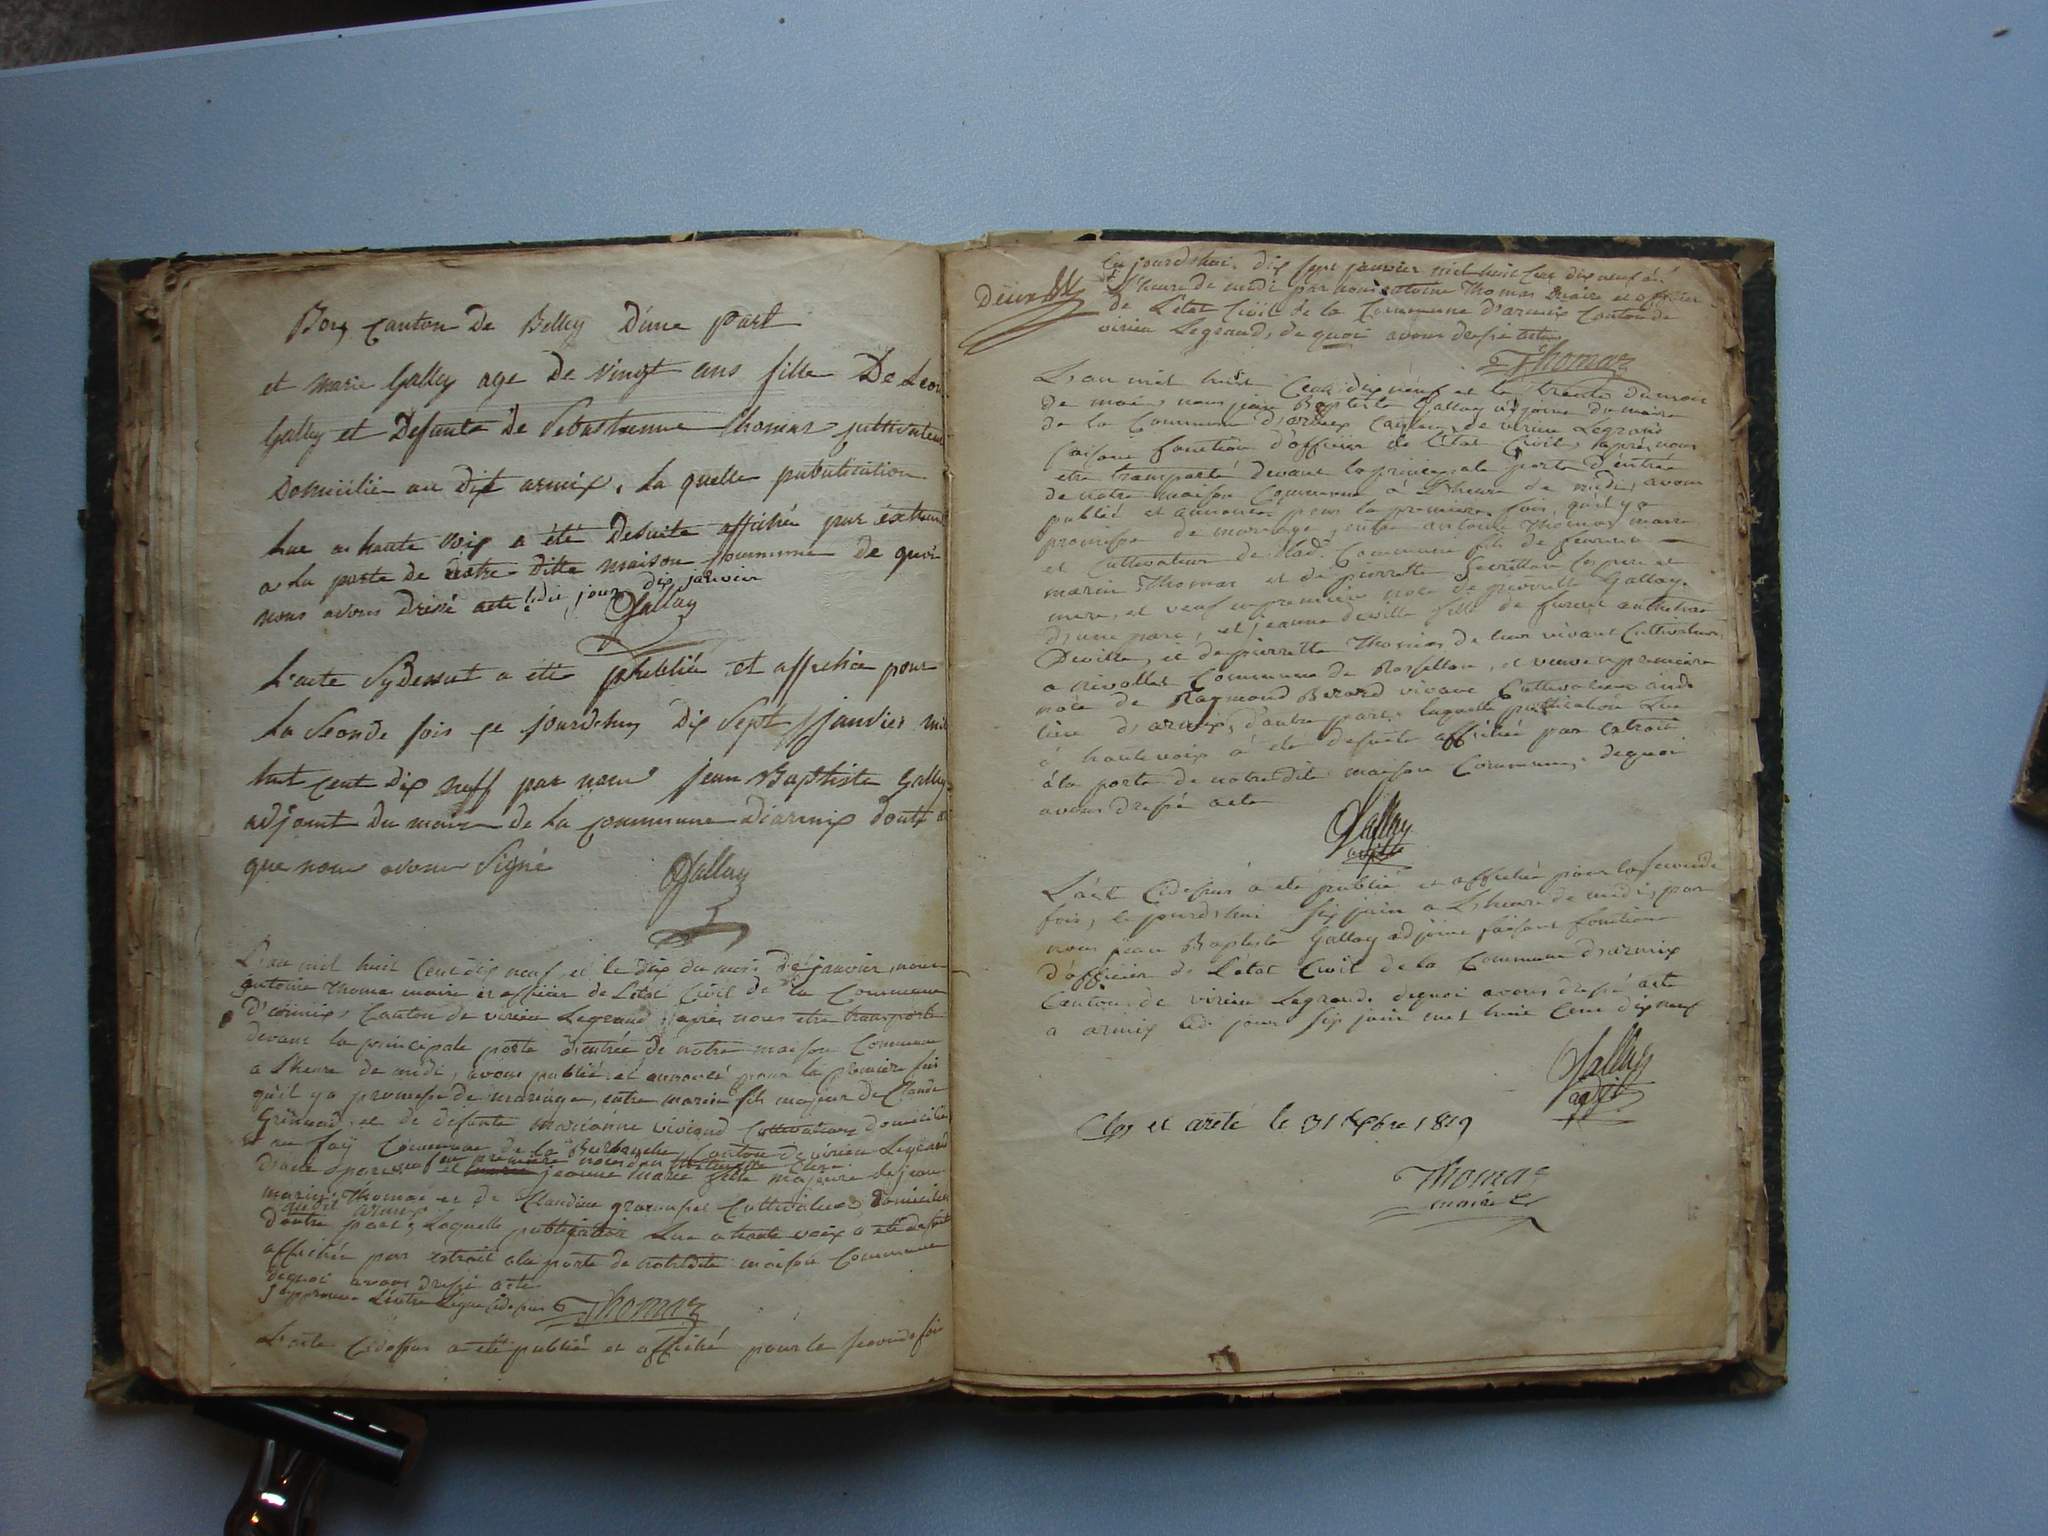 Bons Canton De Belley D'une part
et marie Gallay age De vingt ans fille De Leon
Gallay et Defunte De Sebastienne Thomas cultivateur
Domicilié au dit armix, La quelle publication
Lue a haute voix a été Desuite affichée par extrait
a La porte De notre ditte maison commune De quoi
nous avons Dressé acte ledit jour dix janvier
Gallay
L'acte Sydessut a été publiée et affichée pour
La Seconde fois ce jourdhuy Dix Sept janvier mil
huit cent dix neff par nous jean Baptiste Gallay
adjoint Du maire de La commune D'armix dont
que nous avons Signé
Gallay
L'an mil huit cent dix neuf et le dix du mois de janvier, nous
antoine Thomas maire et officier de L'état civil de la Commune
D'armix, Canton de virieu Legrand, après nous etre transporté
devant la principale porte d'entrée de notre maison Commune
a L'heure de midi, avons publié et annoncé pour la premiere fois
qu'il y a promesse de mariage, entre marin fils majeur de Claude
Grinand et de défunte marianne vivignd Cultivateurs domiciliés
au fay Commune de la Burbanche, Canton de virieu Legrand
D'une part, veuf en premiere noces et jeanne marie fille majeure de jean
marin Thomas et de Claudine Cultivateurs domiciliés
audit armix
D'autre part; Laquelle publication Lue a haute voix a été desuite
affichée par extrait a la porte de notredite maison Commune
dequoi avons dressé acte
japprouve L'entre Ligne cidessus Thomas
L'acte Cidessus a été publié et affiché pour la seconde fois
Deux
Ce jourdhui dix sept janvier mil huit cent dix neuf a
L'heure de midi par nous antoine Thomas maire et officier
de L'état Civil de la Commune d'armix Canton de
virieu Legrand, de quoi avons dressé acte
Thomas
L'an mil huit Cent dix neuf et le trente du mois
de mai, nous jean Baptiste Gallay adjoint du maire
de la Commune d'armix Canton de virieu Legrand
faisant fonction d'officier de l'état Civil, après nous
etre transporté devant la principale porte d'entrée
de notre maison Commune à L'heure de midi, avons
publié et annoncé pour la premiere fois, qu'il y a
promesse de mariage, entre antoine Thomas maire
et Cultivateur de Lad. Commune fils de feu
marin Thomas et de pierrette ses pere et
mere, et veuf en premiere noce de pierrette Gallay
d'une part, et jeanne deville fille de furent anthelme
Deville, et de pierrette Thomas, de leur vivant Cultivateurs
a rivollet Commune de Rossillon, et veuve en premiere
noce de Raymond Berard vivant Cultivateur
d'armix, d'autre part, laquelle publication Lue
à haute voix a été desuite affichée par extrait
à la porte de notredite maison Commune, dequoi
avons dressé acte
Gallay
adjt
L'acte Cidessus a été publié et affiché pour la seconde
fois, ce jourdhui six juin a L'heure de midi, par
nous jean Baptiste Gallay adjoint faisant fonction
d'officier de L'état Civil de la Commune d'armix
Canton de virieu Legrand, dequoi avons dressé acte
a armix led. jour six juin mil huit Cent dix neuf
Gallay
adjt
Clos et areté le 31 Xbre 1819
Thomas
maire